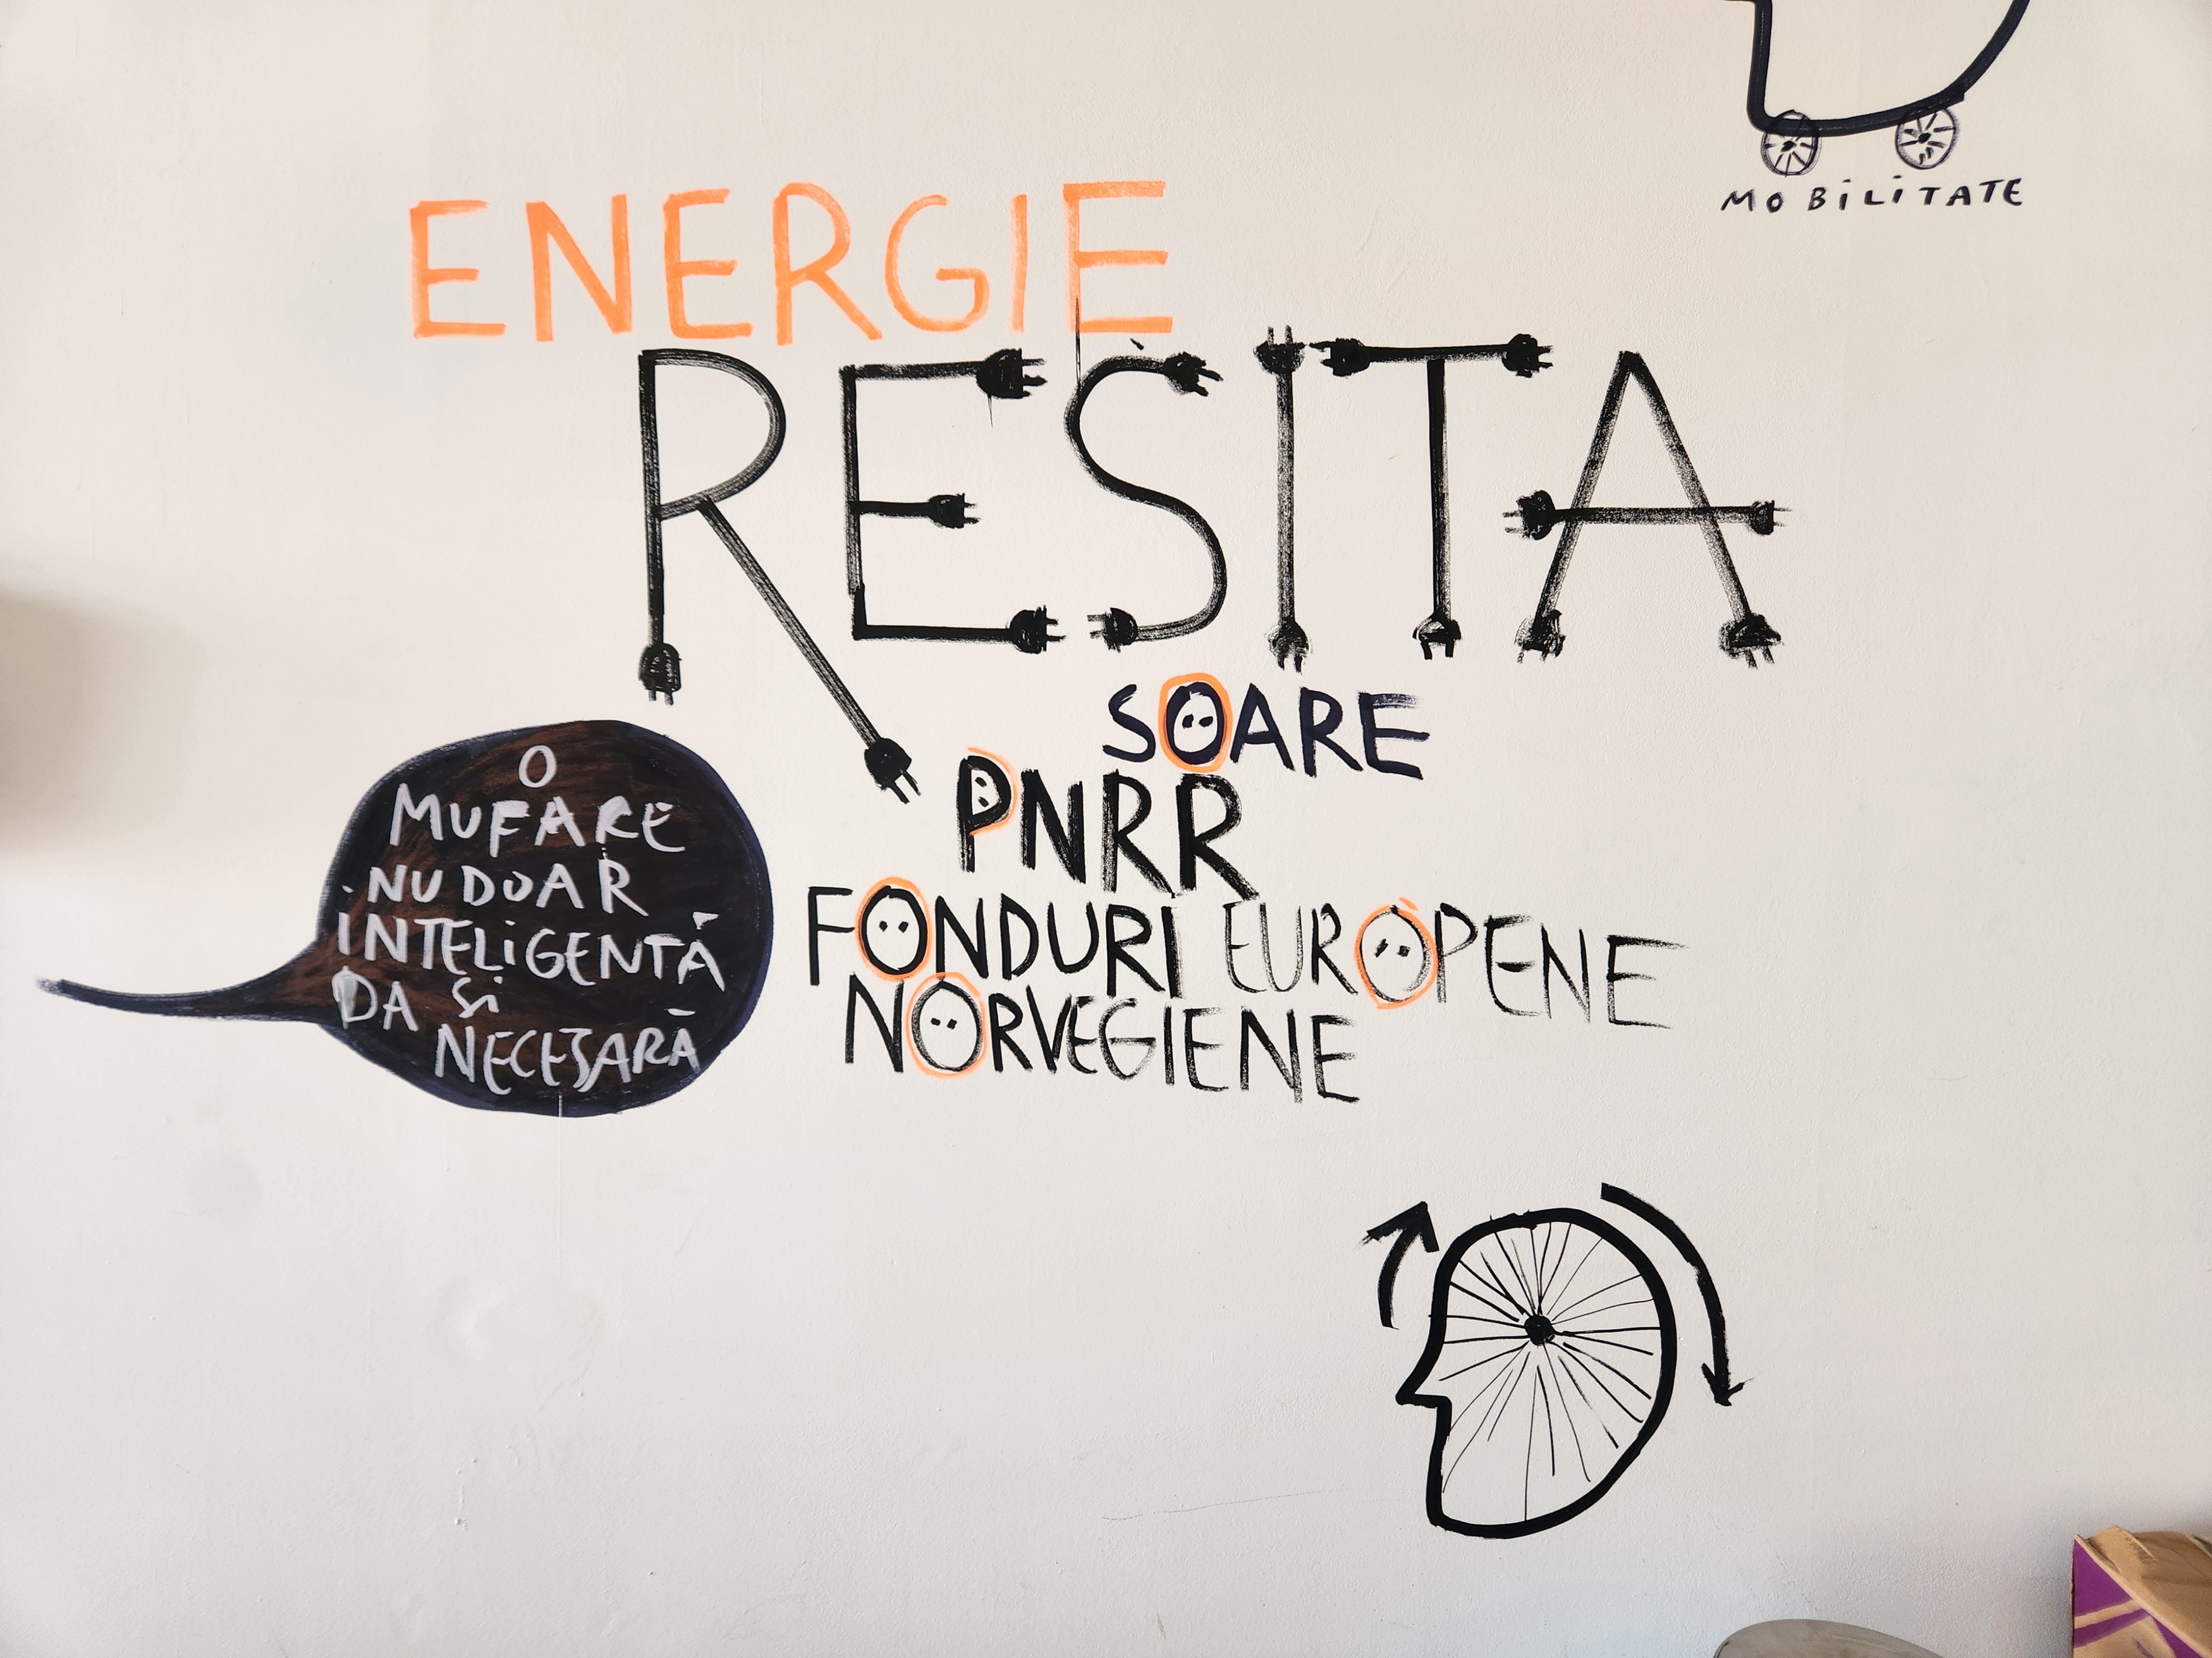 MOBILITATE
ENERGIE
RESITA
SOARE
PNRR
FONDURI EUROPENE
NORVEGIENE
O
MUFARE
NU DOAR
INTELIGENTĂ
DA SI
NECESARĂ